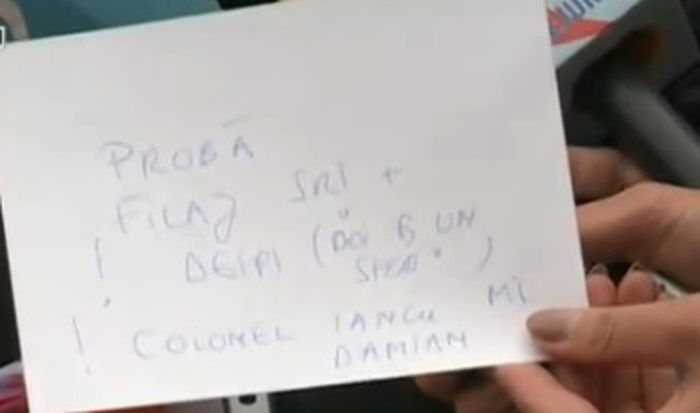 PROBĂ
FILAJ SRI +
! DGIPI (DOI ȘI UN
)
! COLONEL IANCU MI
DAMIAN